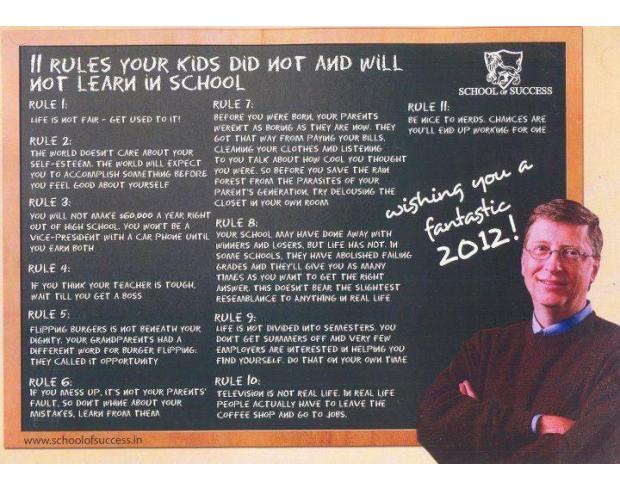 11 RULES YOUR KIDS DID NOT AND WILL
NOT LEARN IN SCHOOL
RULE 1:
LIFE IS NOT FAIR - GET USED TO IT!
RULE 2:
THE WORLD DOESN'T CARE ABOUT YOUR
SELF-ESTEEM. THE WORLD WILL EXPECT
YOU TO ACCOMPLISH SOMETHING BEFORE
YOU FEEL GOOD ABOUT YOURSELF
RULE 3:
YOU WILL NOT MAKE $60,000 A YEAR RIGHT
OUT OF HIGH SCHOOL. YOU WON'T BE A
VICE-PRESIDENT WITH A CAR PHONE UNTIL
YOU EARN BOTH
RULE 4:
IF YOU THINK YOUR TEACHER IS TOUGH,
WAIT TILL YOU GET A BOSS
RULE 5:
FLIPPING BURGERS IS NOT BENEATH YOUR
DIGNITY. YOUR GRANDPARENTS HAD A
DIFFERENT WORD FOR BURGER FLIPPING:
THEY CALLED IT OPPORTUNITY
RULE 6:
IF YOU MESS UP, IT'S NOT YOUR PARENTS'
FAULT, SO DON'T WHINE ABOUT YOUR
MISTAKES, LEARN FROM THEM
RULE 7:
BEFORE YOU WERE BORN, YOUR PARENTS
WEREN'T AS BORING AS THEY ARE NOW. THEY
GOT THAT WAY FROM PAYING YOUR BILLS,
CLEANING YOUR CLOTHES AND LISTENING
TO YOU TALK ABOUT HOW COOL YOU THOUGHT
YOU WERE. SO BEFORE YOU SAVE THE RAIN
FOREST FROM THE PARASITES OF YOUR
PARENT'S GENERATION, TRY DELOUSING THE
CLOSET IN YOUR OWN ROOM
RULE 8:
YOUR SCHOOL MAY HAVE DONE AWAY WITH
WINNERS AND LOSERS, BUT LIFE HAS NOT. IN
SOME SCHOOLS, THEY HAVE ABOLISHED FAILING
GRADES AND THEY'LL GIVE YOU AS MANY
TIMES AS YOU WANT TO GET THE RIGHT
ANSWER. THIS DOESN'T BEAR THE SLIGHTEST
RESEMBLANCE TO ANYTHING IN REAL LIFE
RULE 9:
LIFE IS NOT DIVIDED INTO SEMESTERS. YOU
DON'T GET SUMMERS OFF AND VERY FEW
EMPLOYERS ARE INTERESTED IN HELPING YOU
FIND YOURSELF. DO THAT ON YOUR OWN TIME
RULE 10:
TELEVISION IS NOT REAL LIFE. IN REAL LIFE
PEOPLE ACTUALLY HAVE TO LEAVE THE
COFFEE SHOP AND GO TO JOBS.
SCHOOL OF SUCCESS
RULE 11:
BE NICE TO NERDS. CHANCES ARE
YOU'LL END UP WORKING FOR ONE
wishing you a
fantastic
2012!
www.schoolofsuccess.in